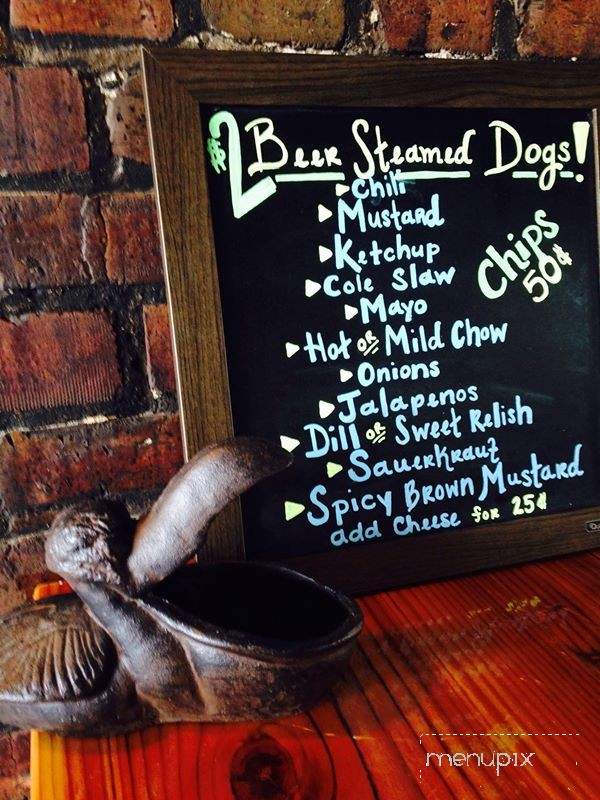 $2 Beer Steamed Dogs!
▸Chili
▸Mustard
▸Ketchup
▸Cole Slaw
▸Mayo
▸Hot or Mild Chow
▸Onions
▸Jalapenos
▸Dill or Sweet Relish
▸Sauerkraut
▸Spicy Brown Mustard
add Cheese for 25¢
Chips
50¢
menupix